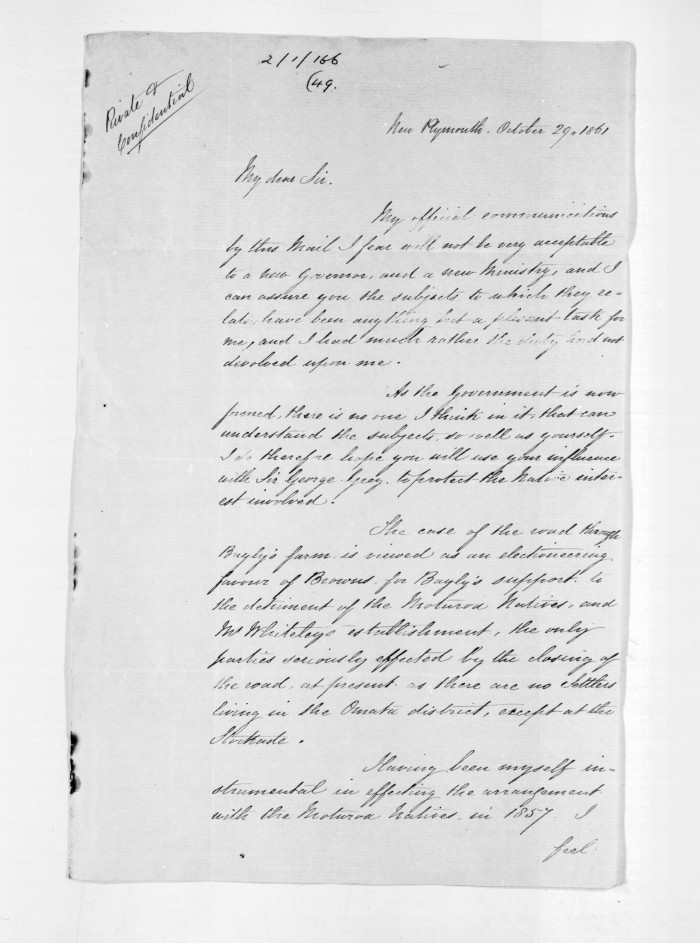 2/1/166
(49.
Private &
Confidential
New Plymouth. October 29. 1861
My dear Sir.
My official communications
by this Mail I fear will not be very acceptable
to a new Govenor, and a new Ministry, and I
can assure you the subjects to which they re-
late, have been anything but a pleasant task for
me, and I had much rather the duty had not
devolved upon me.
As the Government is now
formed, there is no one I think in it, that can
understand the subjects, so well as yourself.
I do therefore hope you will use your influence
with Sir George Grey. to protect the Native inter-
est involved.
The case of the road through
Bayly's farm is viewed as an electioneering
favour of Browns for Bayly's support to
the detriment of the Moturoa Natives, and
Mr Whiteley's establishment, the only
parties seriously effected by the closing of
the road, at present as there are no Settlers
living in the Omata district, except at the
Stockade.
Having been myself in-
strumental in effecting the arrangement
with the Moturoa Natives in 1857 I
feel